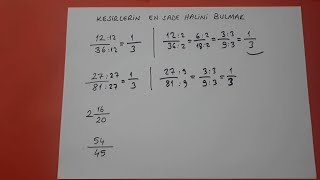 KESİRLERİN EN SADE HALİNİ BULMAK
12:12/36:12 = 1/3 | 12:2/36:2 = 6:2/18:2 = 3:3/9:3 = 1/3
27:27/81:27 = 1/3 | 27:9/81:9 = 3:3/9:3 = 1/3
2 16/20
54/45